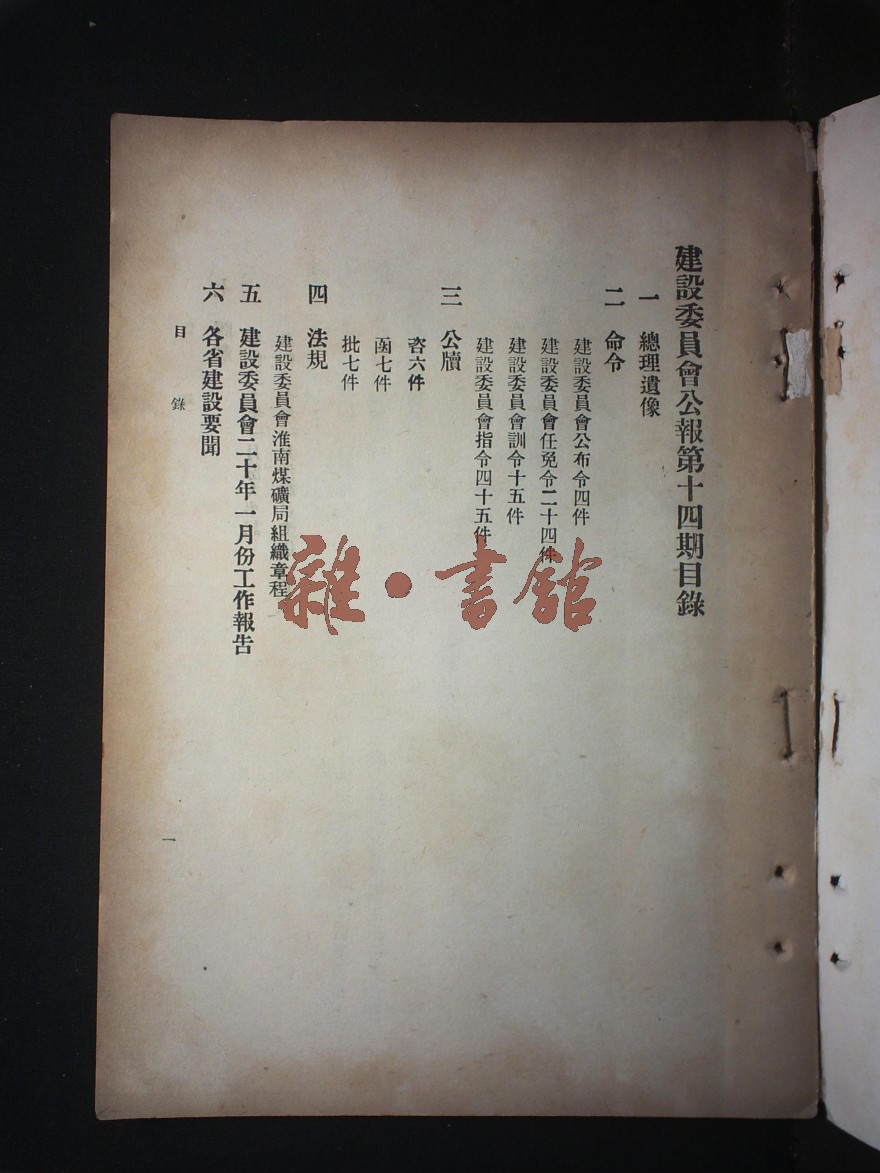 建設委員會公報第十四期目錄
一　總理遺像
二　命令
建設委員會公布令四件
建設委員會任免令二十四件
建設委員會訓令十五件
建設委員會指令四十五件
三　公牘
咨六件
函七件
批七件
四　法規
建設委員會淮南煤礦局組織章程
五　建設委員會二十年一月份工作報告
六　各省建設要聞
目　錄
一
雜・書館